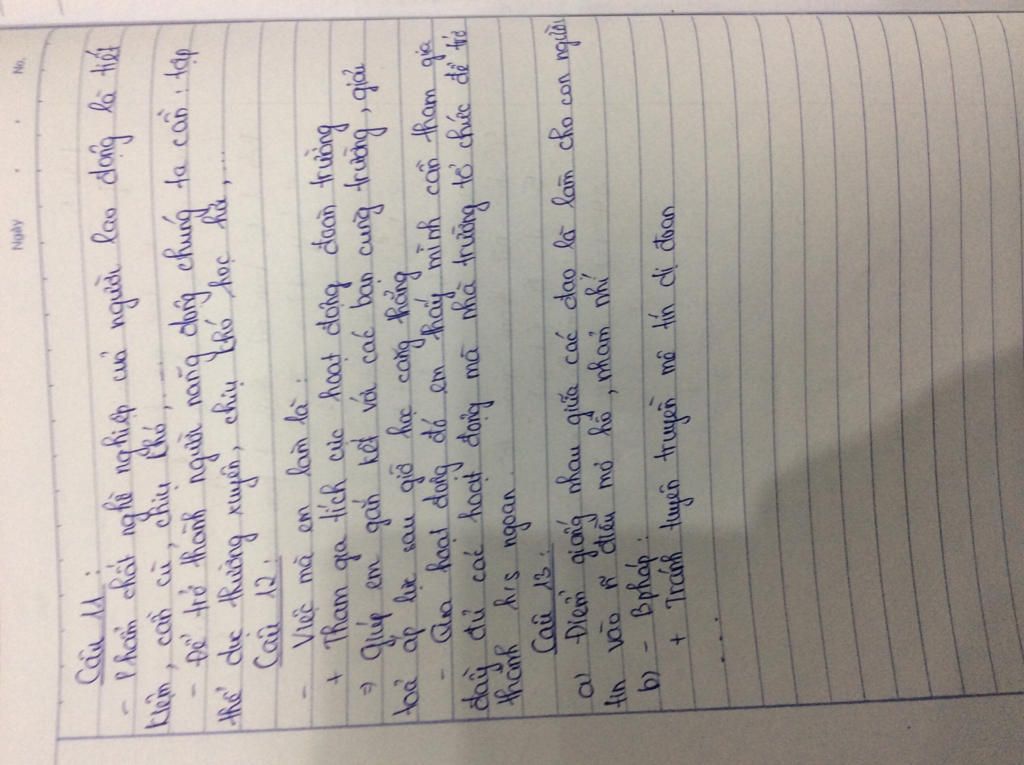 Ngày . . No.
Câu 11:
- Phẩm chất nghề nghiệp của người lao động là tiết
kiệm, cần cù, chịu khó,...
- Để trở thành người năng động chúng ta cần: tập
thể dục thường xuyên, chịu khó học hỏi,...
Câu 12:
- Việc mà em làm là:
+ Tham gia tích cực hoạt động đoàn trường
=> Giúp em gắn kết với các bạn cùng trường, giải
toả áp lực sau giờ học căng thẳng
- Qua hoạt động đó em thấy mình cần tham gia
đầy đủ các hoạt động mà nhà trường tổ chức để trở
thành h/s ngoan.
Câu 13:
a) Điểm giống nhau giữa các đạo là làm cho con người
tin vào điều mơ hồ, nhảm nhí
b) - Bpháp:
+ Tránh tuyên truyền mê tín dị đoan
....